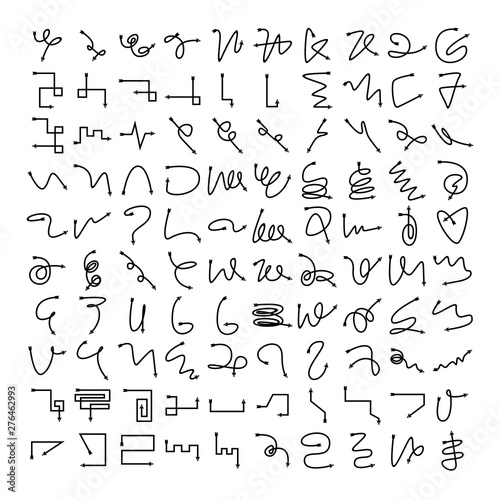 Adobe Stock | #276462993